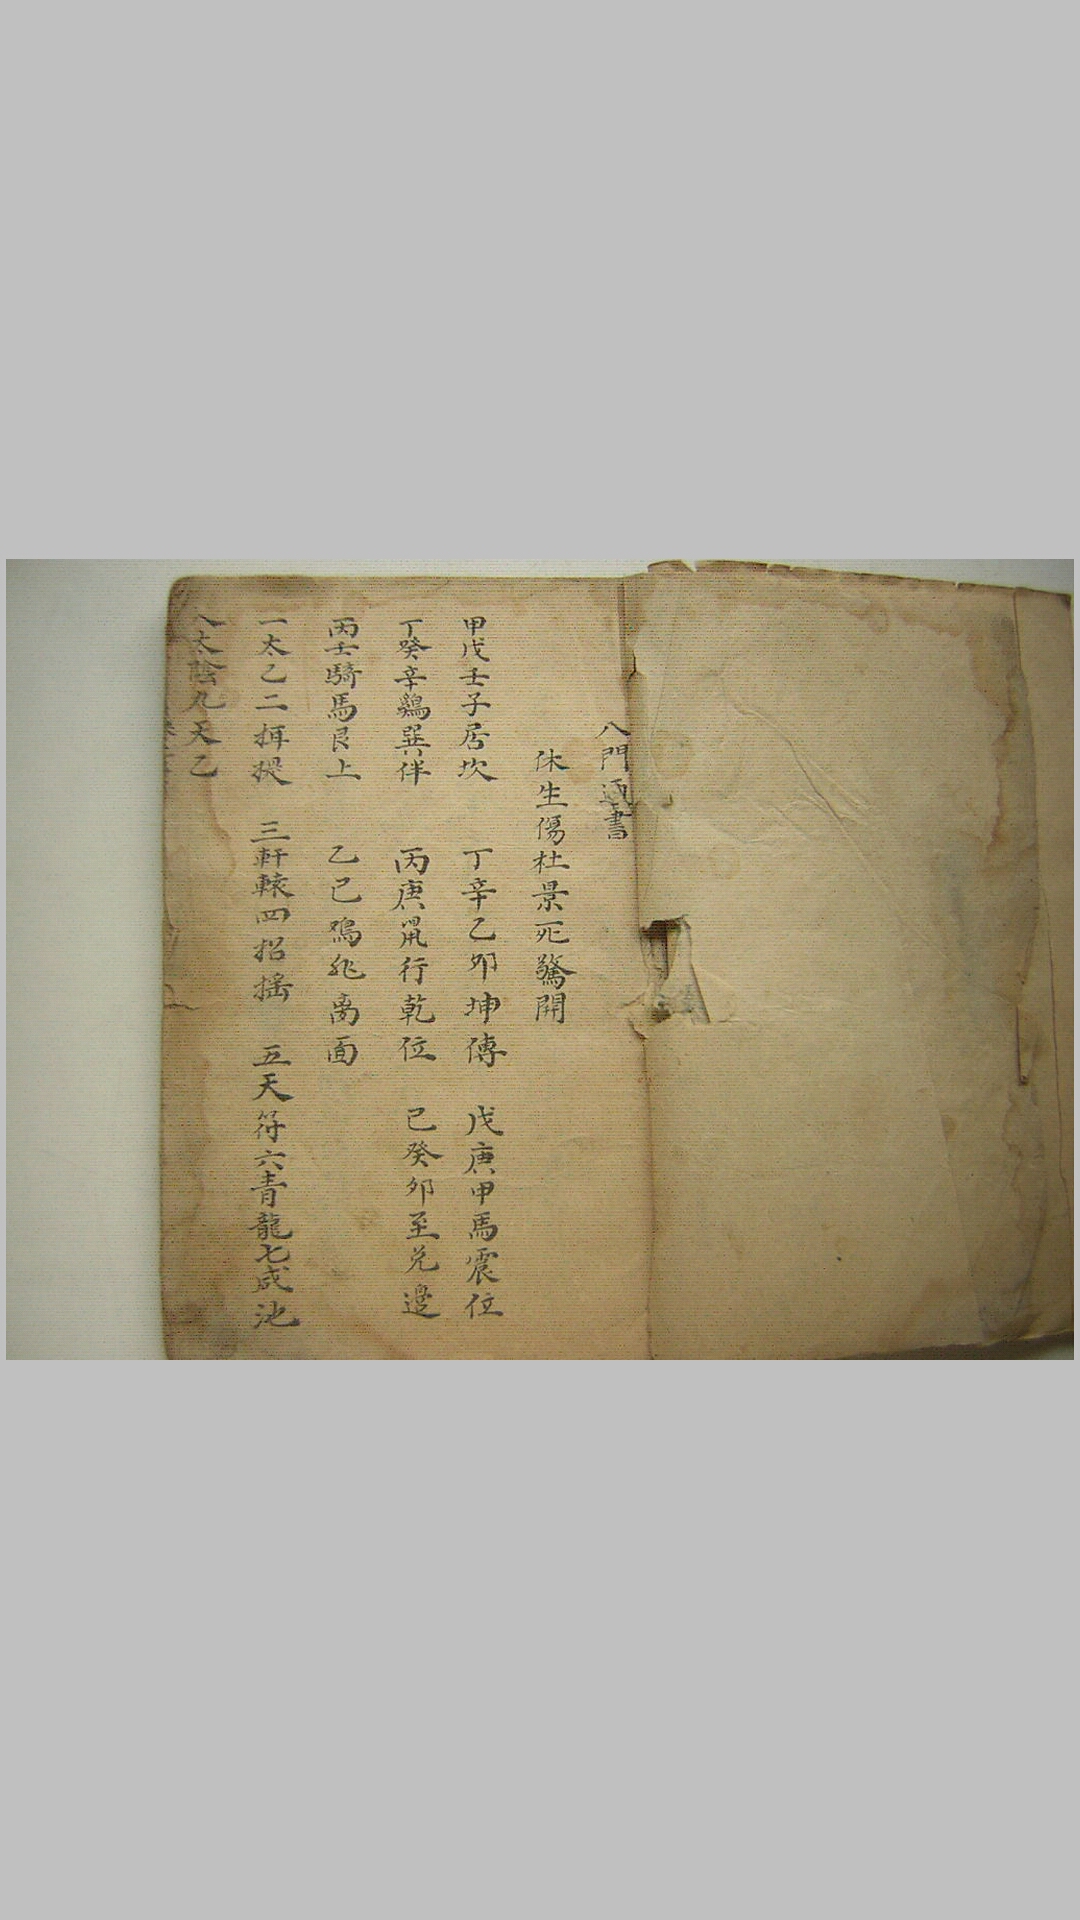 八門通書
休生傷杜景死驚開
甲戊壬子居坎 丁辛乙卯坤傳 戊庚甲馬震位
丁癸辛鷄巽伴 丙庚鼠行乾位 己癸卯至兌邊
丙壬騎馬艮上 乙巳鳮飛离面
一太乙二摄提 三軒轅四招摇 五天符六青龍七咸池
八太陰九天乙